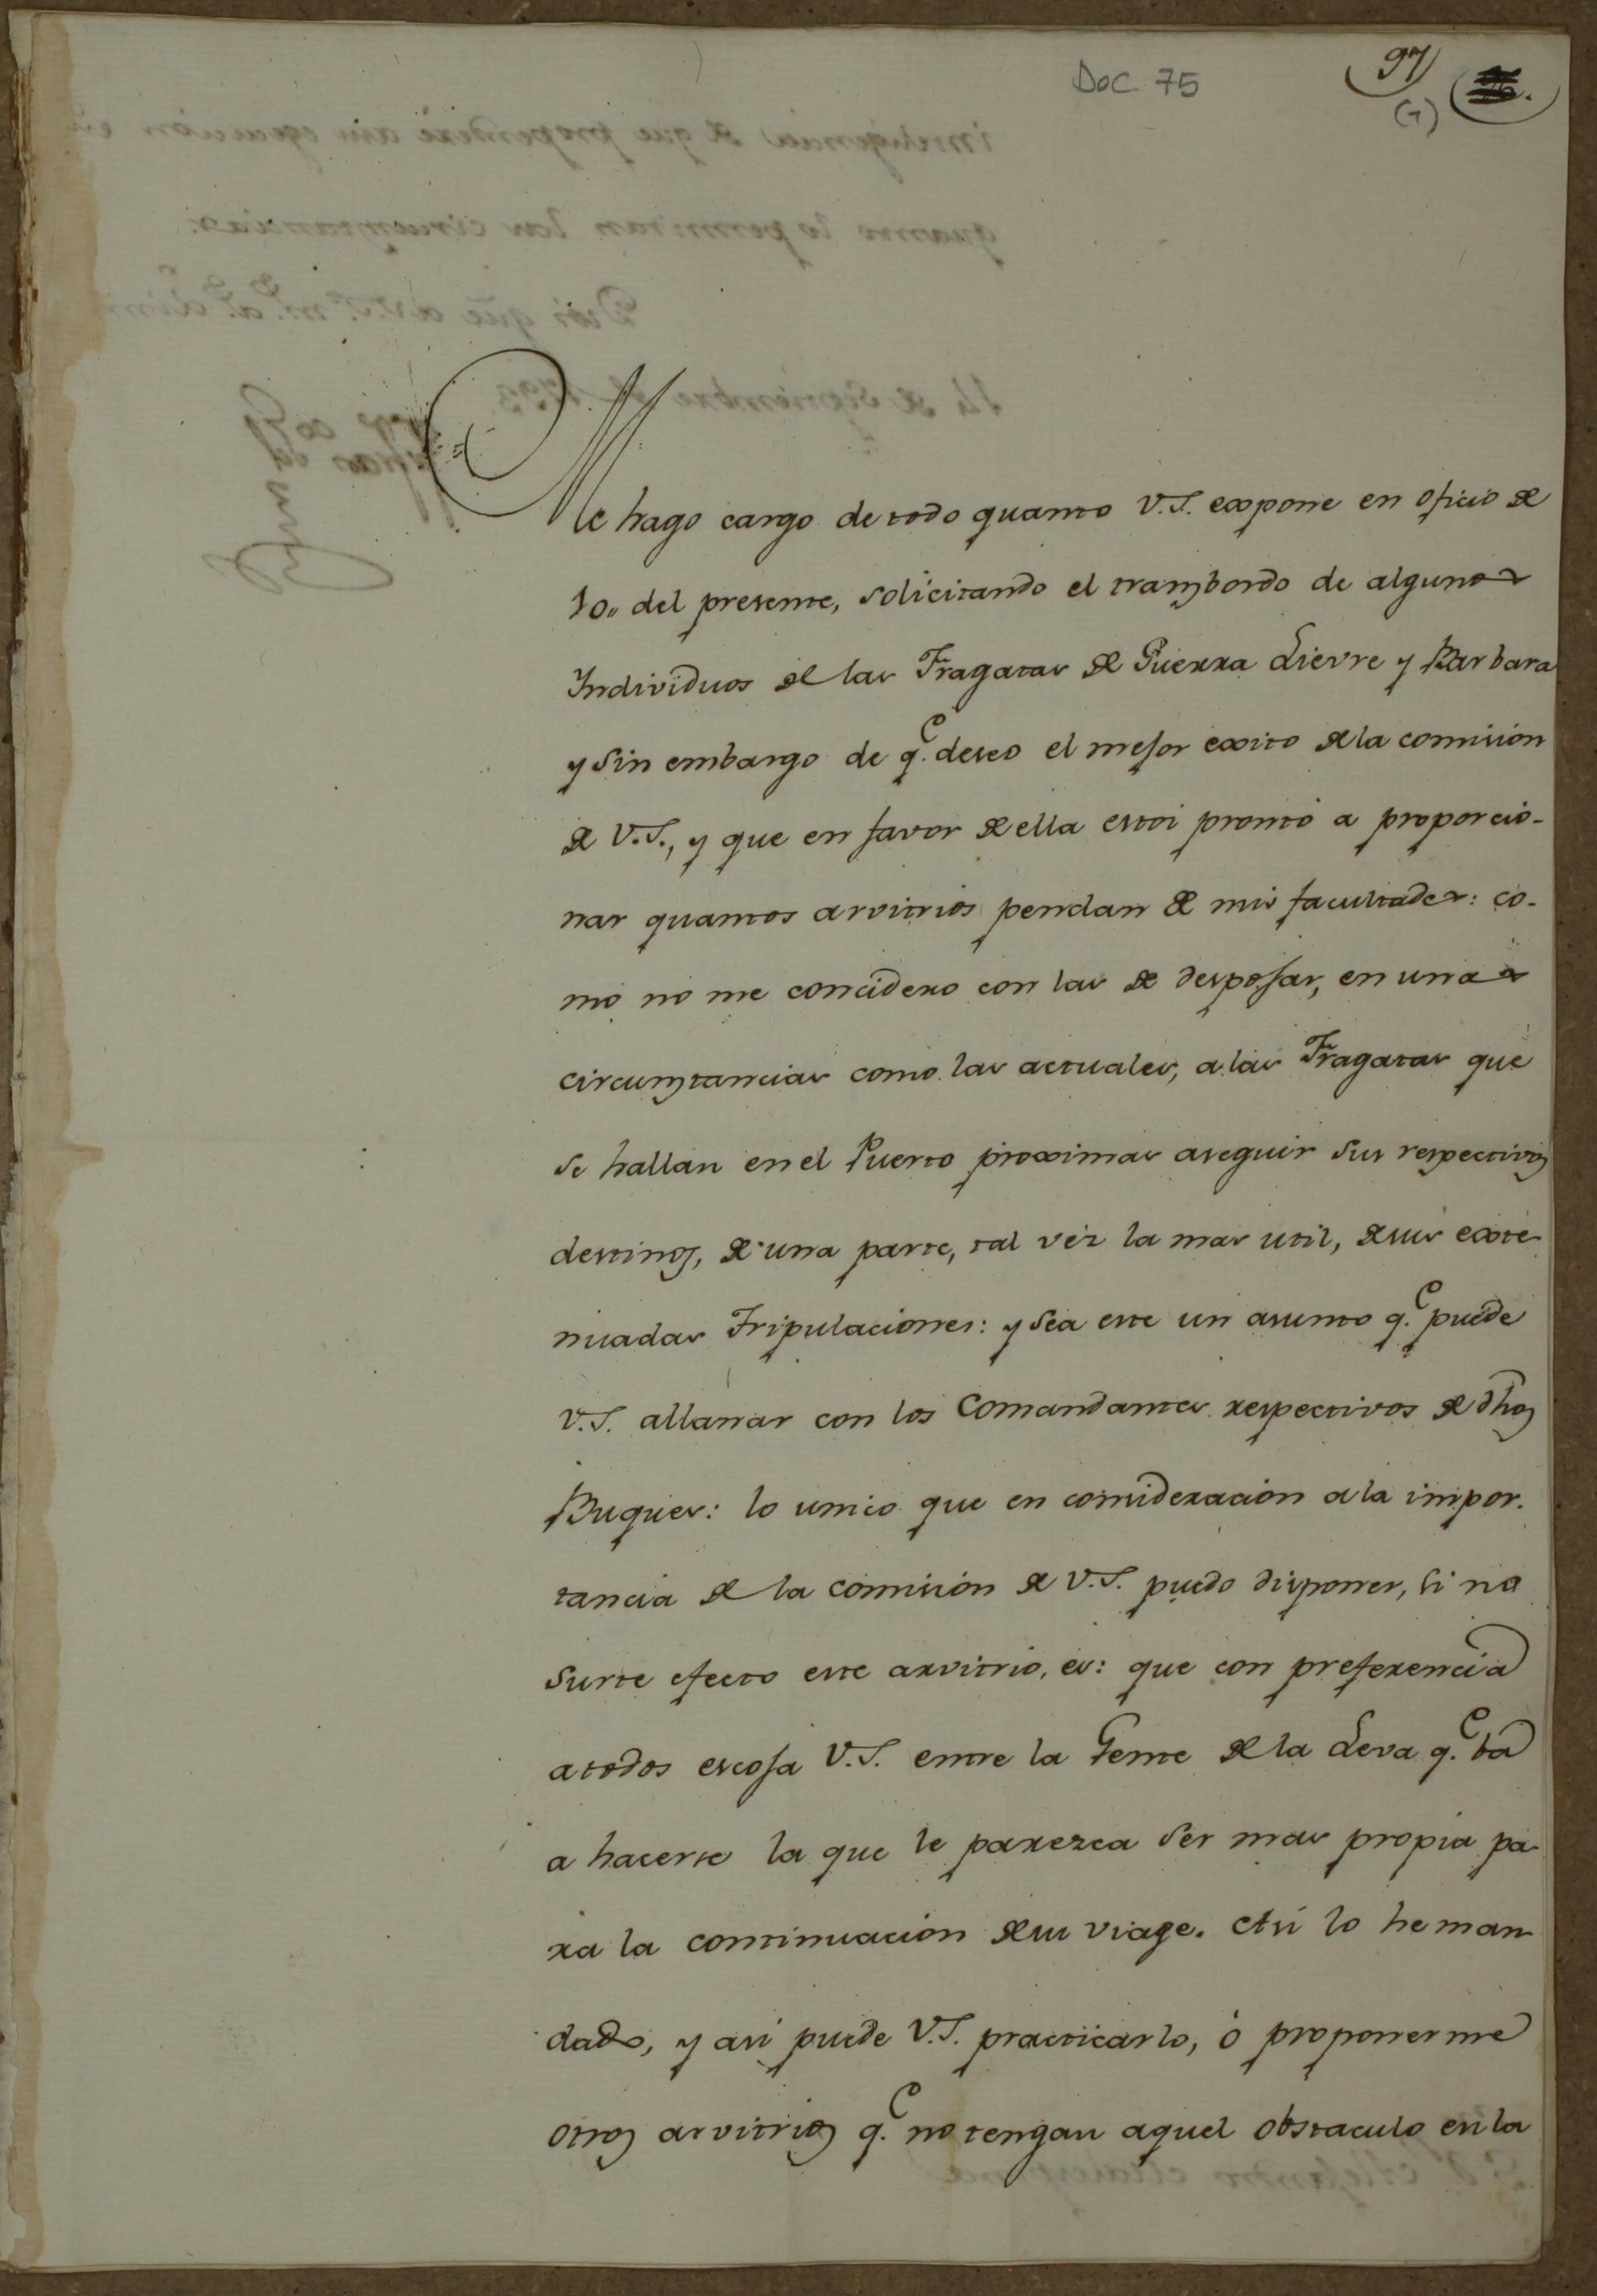 Doc 75
97
(7)
Me hago cargo de todo quanto V.S. expone en oficio de
10,, del presente, solicitando el transbordo de algunos
Individuos de las Fragatas de Guerra Lievre y Barbara
y sin embargo de q.e deseo el mejor exito de la comision
de V.S., y que en favor de ella estoi pronto a proporcio-
nar quantos arvitrios pendan de mis facultades: co-
mo no me concidero con las de despojar, en unas
circunstancias como las actuales, a las Fragatas que
se hallan en el Puerto proximas aseguir sus respectivos
destinos, de una parte, tal véz la mas util, de sus exte-
nuadas Tripulaciones: y sea este un asunto q.e puede
V.S. allanar con los Comandantes respectivos de dhos
Buques: lo unico que en consideracion a la impor-
tancia de la comision de V.S. puedo disponer, si no
surte efecto este arvitrio, es: que con preferencia
atodos escoja V.S. entre la Gente de la Leva q.e bá
a hacerse la que le parezca ser mas propia pa-
ra la continuacion de su viage. Asi lo he man-
dado, y asi puede V.S. practicarlo, ó proponerme
otros arvitrios q.e no tengan aquel obstaculo en la